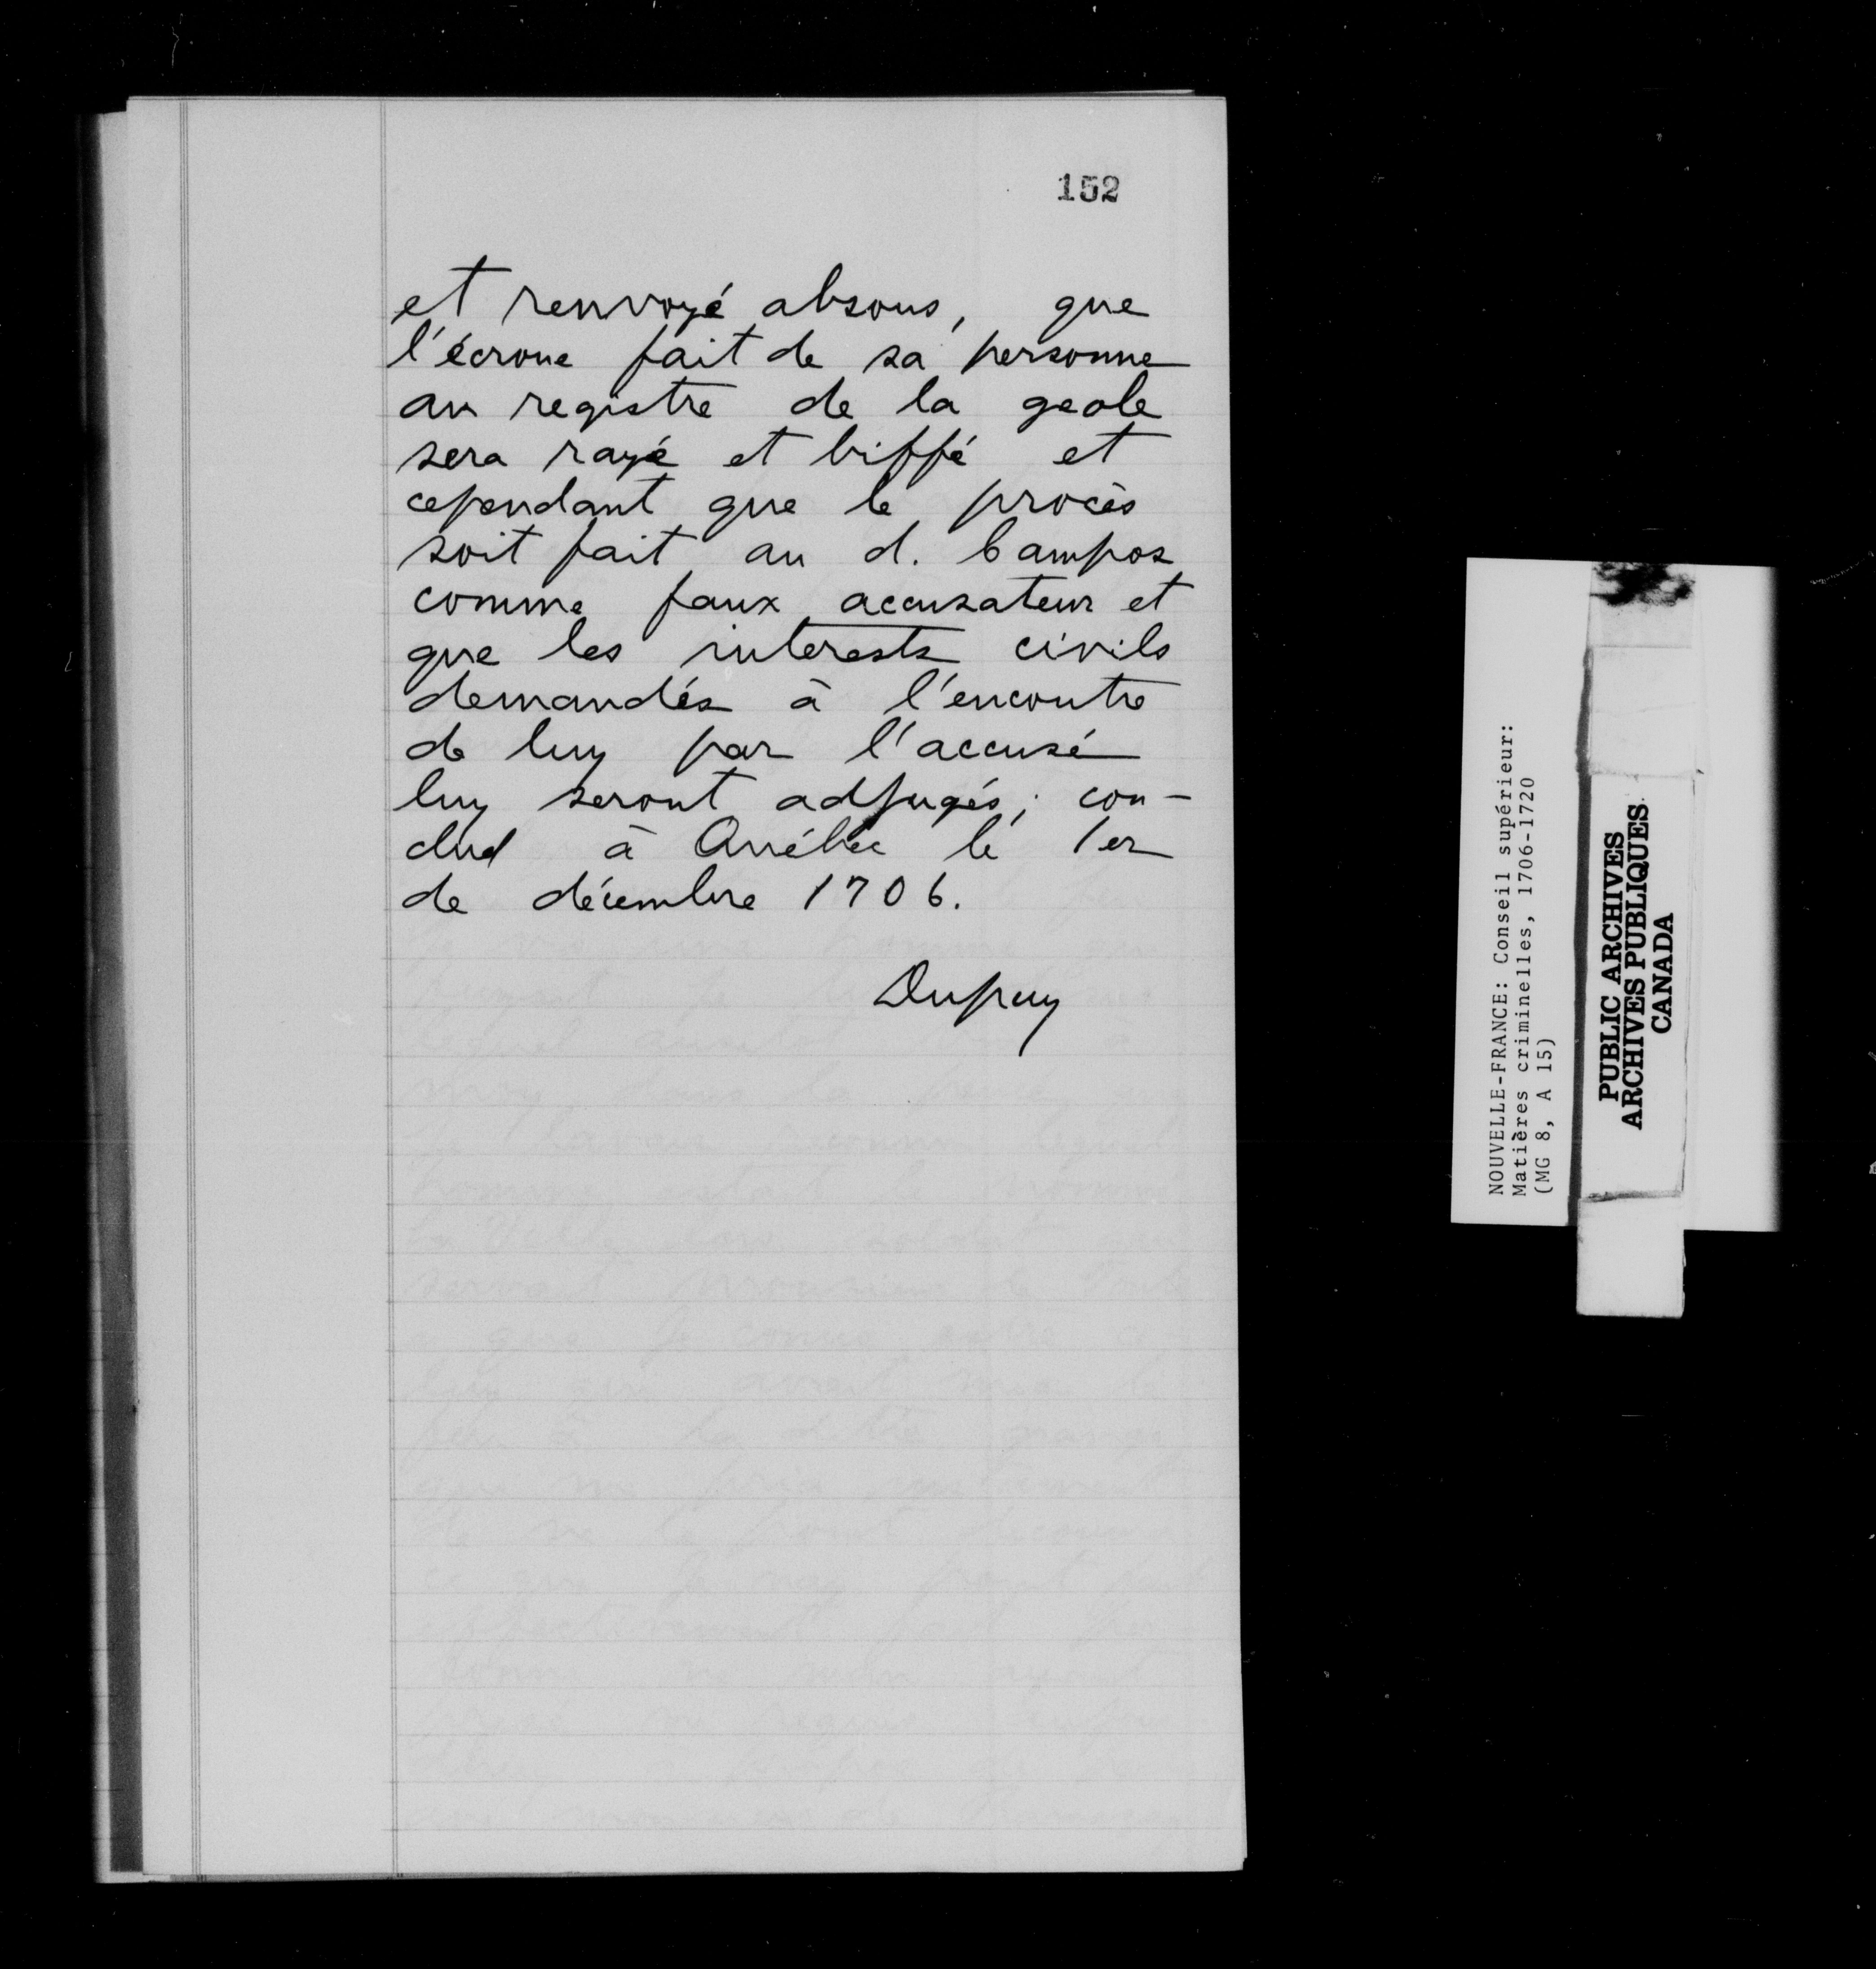 152
et renvoyé absous, que
l'écroue fait de sa personne
au registre de la geole
sera rayé et biffé et
cependant que le procès
soit fait au d. Campos
comme faux accusateur et
que les interests civils
demandés à l'encontre
de luy par l'accusé
luy seront adjugés; con-
clud à Québec le 1er
de décembre 1706.
Dupuy
NOUVELLE-FRANCE: Conseil supérieur:
Matières criminelles, 1706-1720
(MG 8, A 15)
PUBLIC ARCHIVES
ARCHIVES PUBLIQUES
CANADA